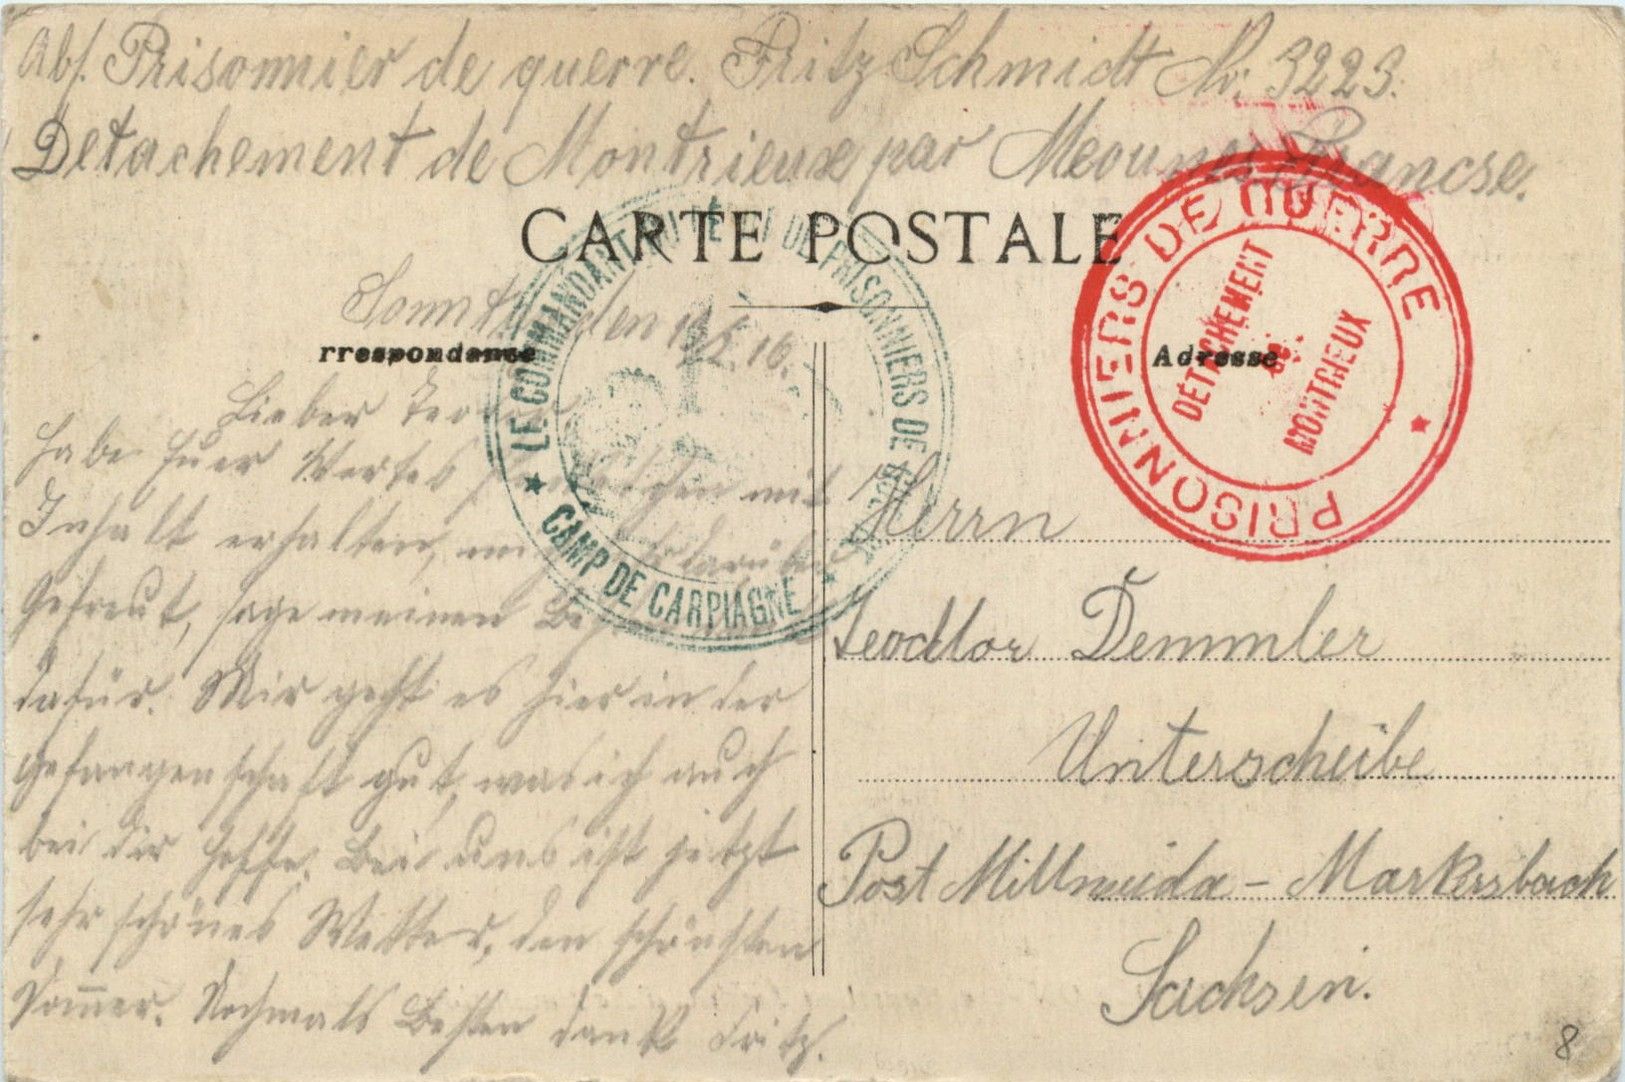 Abs. Prisonnier de guerre. Fritz Schmidt Nr. 3223.
Detachement de Montrieux par Meounes Francse.
CARTE POSTALE
rrespondance
Adresse
LE COMMANDANT DU DÉPÔT DE PRISONNIERS DE GUERRE
CAMP DE CARPIAGNE
PRISONNIERS DE GUERRE
DÉTACHEMENT
DE
MONTRIEUX
den 16.
Lieber
habe Euer Wertes mit
Inhalt erhalten, darüber
Gefreut, sage meinen
dafür. Mir geht es hier in der
Gefangenschaft gut, was ich auch
bei dir hoffe. Bei uns ist jetzt
sehr schönes Wetter, den schönsten
Sommer. Nochmals Besten Dank Fritz.
Herrn
Teodor Demmler
Unterscheibe
Post Mittweida - Markersbach
Sachsen.
8